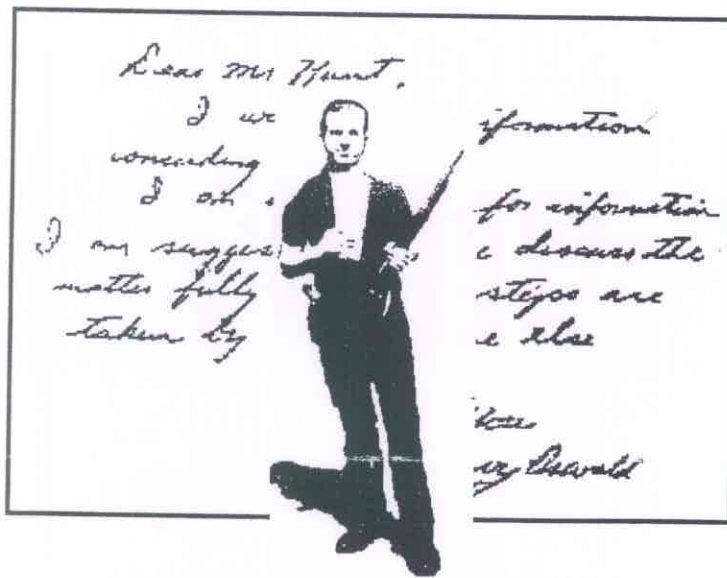 Dear Mr Hunt,
I iformation
concerding
I on for information
I am sugges discuss the
matter fully steps are
taken by e else
Oswald